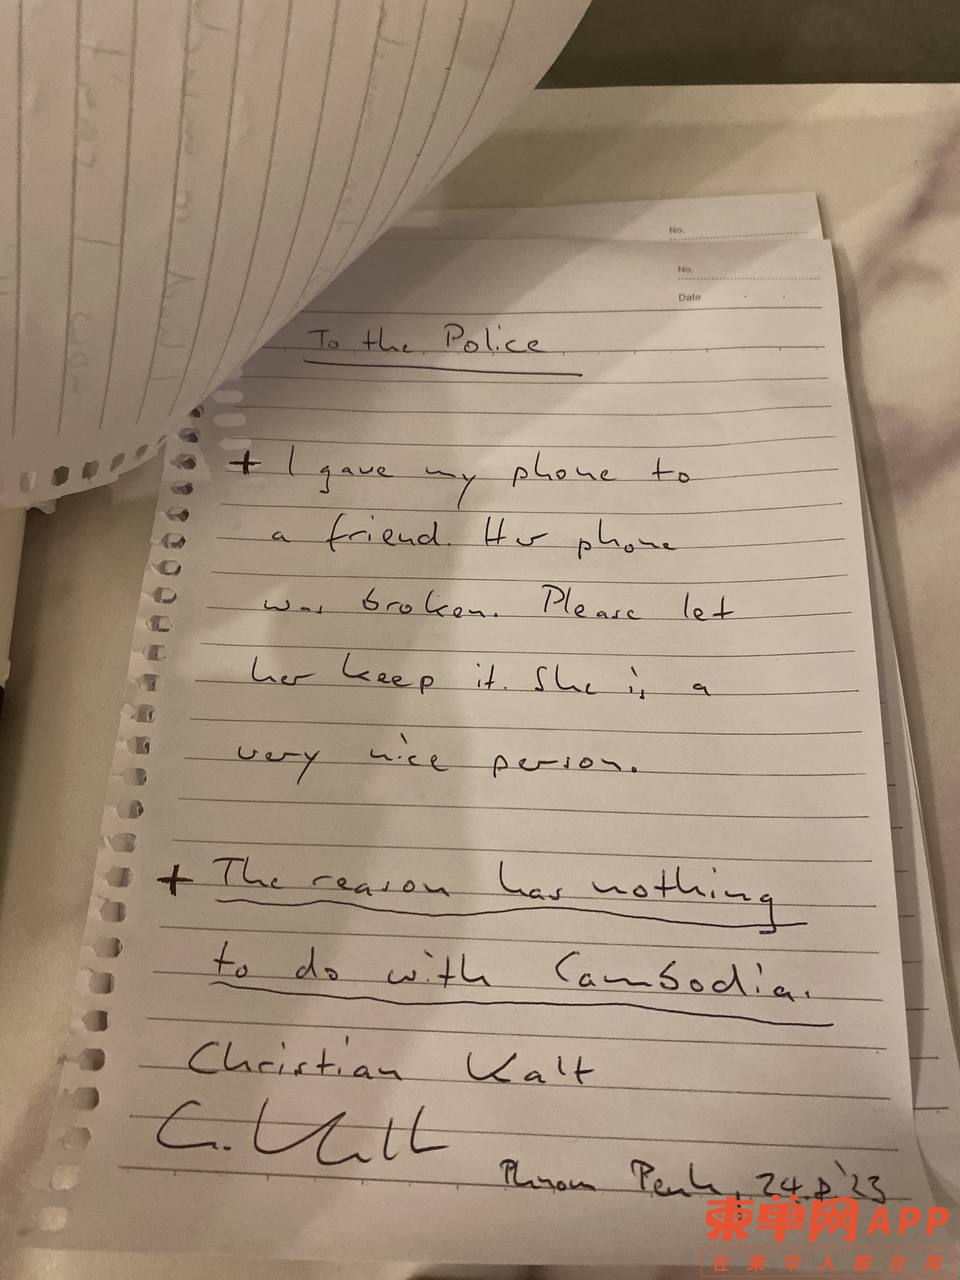 No.
No.
Date
To the Police
+ I gave my phone to
a friend. Her phone
was broken. Please let
her keep it. She is a
very nice person.
+ The reason has nothing
to do with Cambodia.
Christian Kalt
Phnom Penh, 24.8'23
柬单网APP
在柬华人都在用